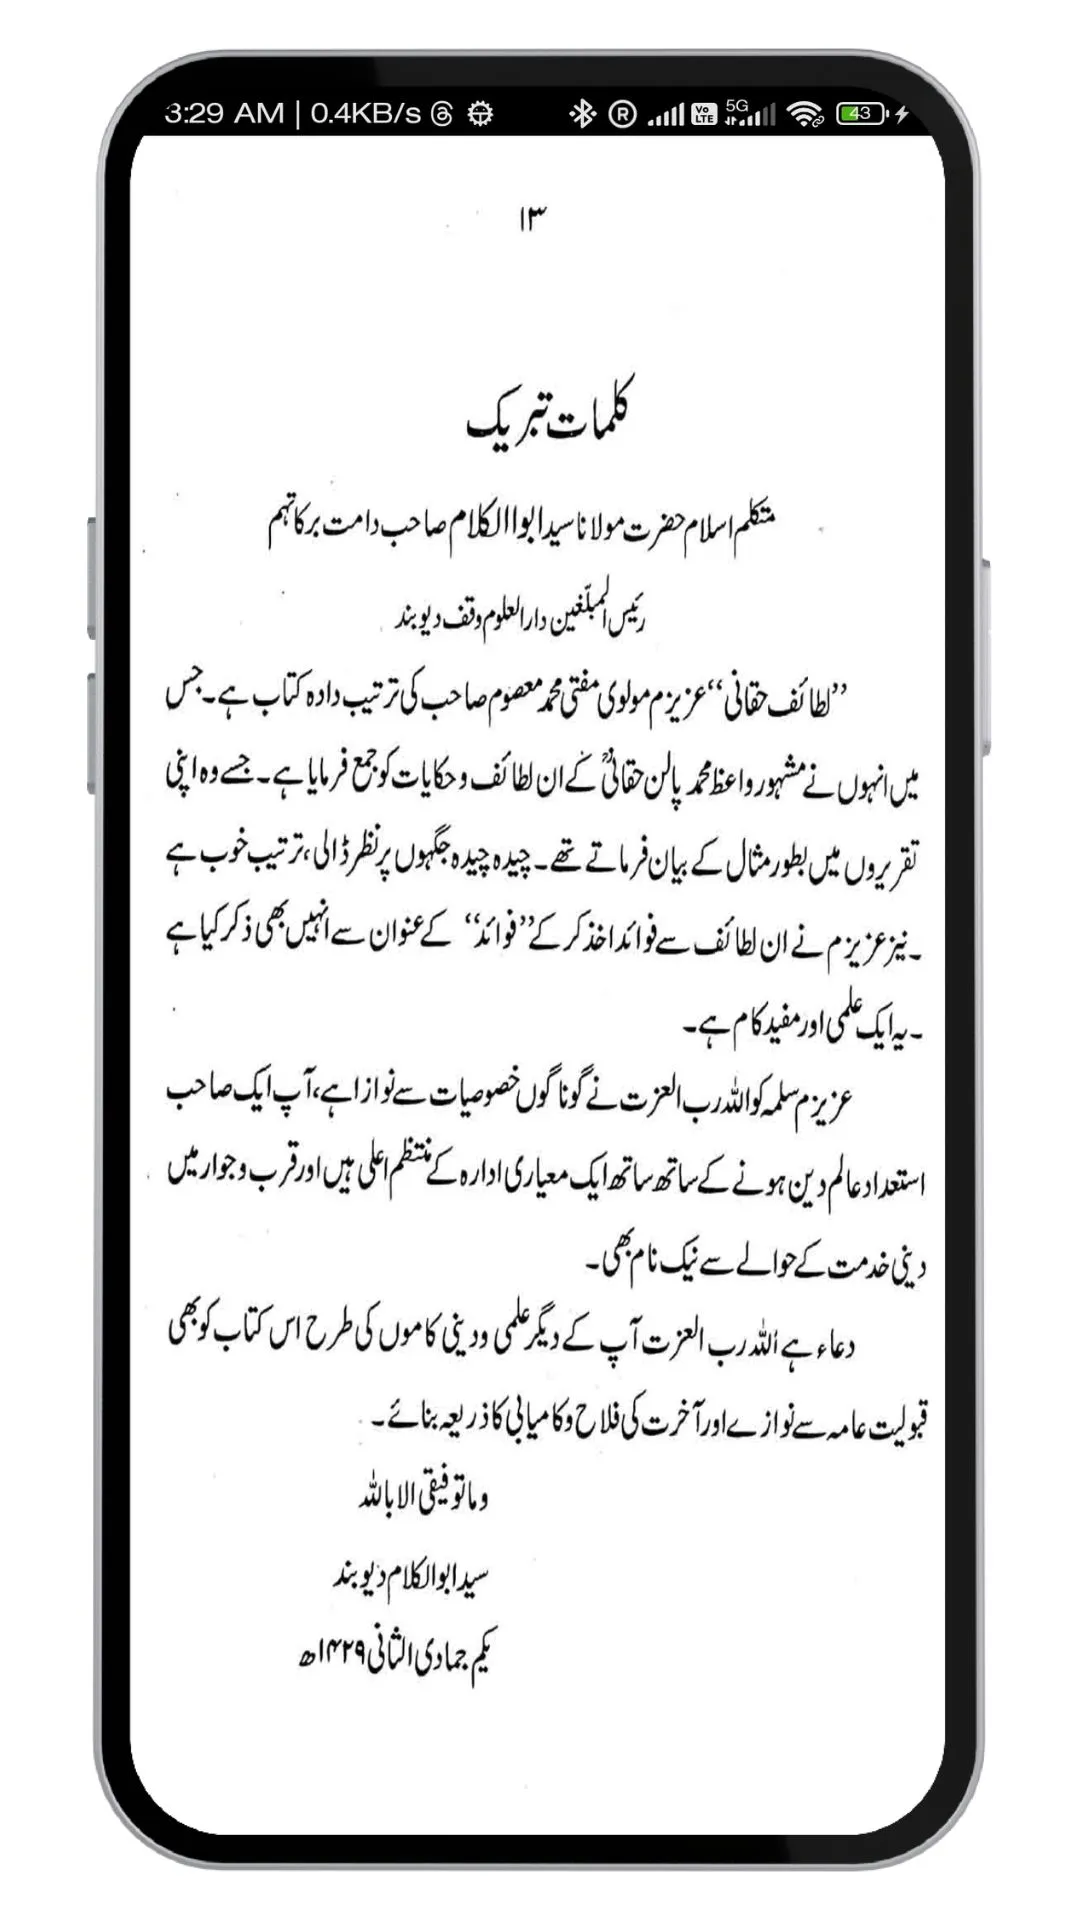 3:29 AM | 0.4KB/s
R
Vo LTE
5G
43
۱۳
کلمات تبریک
متکلم اسلام حضرت مولانا سید ابواالکلام صاحب دامت برکاتہم
رئیس المبلّغین دارالعلوم وقف دیوبند
”لطائف حقانی“ عزیزم مولوی مفتی محمد معصوم صاحب کی ترتیب دادہ کتاب ہے۔ جس
میں انہوں نے مشہور واعظ محمد پالن حقانیؒ کے ان لطائف و حکایات کو جمع فرمایا ہے۔ جسے وہ اپنی
تقریروں میں بطور مثال کے بیان فرماتے تھے۔ چیدہ چیدہ جگہوں پر نظر ڈالی، ترتیب خوب ہے
۔ نیز عزیزم نے ان لطائف سے فوائد اخذ کر کے ”فوائد“ کے عنوان سے انہیں بھی ذکر کیا ہے
۔ یہ ایک علمی اور مفید کام ہے۔
عزیزم سلمہ کو اللہ رب العزت نے گوناگوں خصوصیات سے نوازا ہے، آپ ایک صاحب
استعداد عالم دین ہونے کے ساتھ ساتھ ایک معیاری ادارہ کے منتظم اعلی ہیں اور قرب و جوار میں
دینی خدمت کے حوالے سے نیک نام بھی۔
دعاء ہے اللہ رب العزت آپ کے دیگر علمی و دینی کاموں کی طرح اس کتاب کو بھی
قبولیت عامہ سے نوازے اور آخرت کی فلاح و کامیابی کا ذریعہ بنائے۔
وما توفیقی الا باللہ
سید ابوالکلام دیوبند
یکم جمادی الثانی ۱۴۲۹ھ